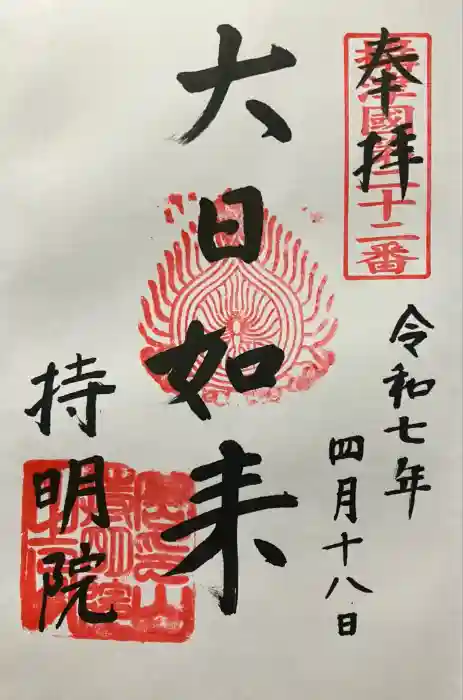 奉拝
攝津國第二十二番
令和七年
四月十八日
大日如来
持明院